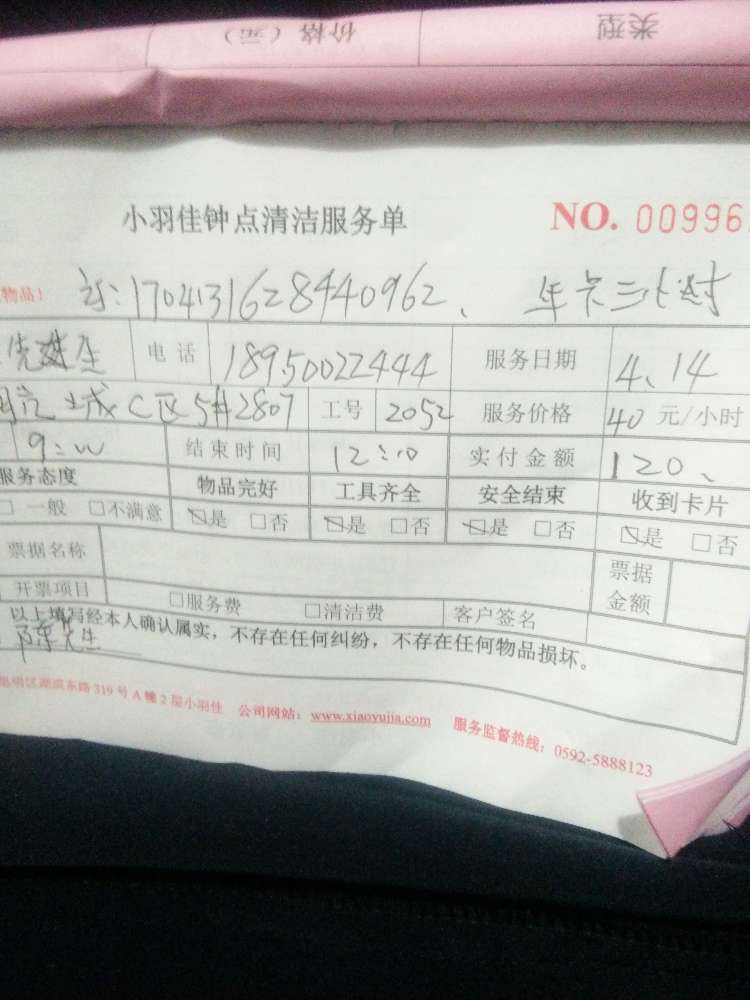 类型 价格（元）
小羽佳钟点清洁服务单 NO. 00996
物品！ 计:1704131628440962、 年卡三小时
先生 电话 18950022444 服务日期 4、14
城C区5#2807 工号 2052 服务价格 40元/小时
9:00 结束时间 12:10 实付金额 120、
服务态度 物品完好 工具齐全 安全结束 收到卡片
□一般 □不满意 ☑是 □否 ☑是 □否 ☑是 □否 ☑是 □否
票据名称 票据金额
开票项目 □服务费 □清洁费 客户签名
以上填写经本人确认属实，不存在任何纠纷，不存在任何物品损坏。
陈先生
思明区湖滨东路319号A幢2层小羽佳 公司网站：www.xiaoyujia.com 服务监督热线：0592-5888123